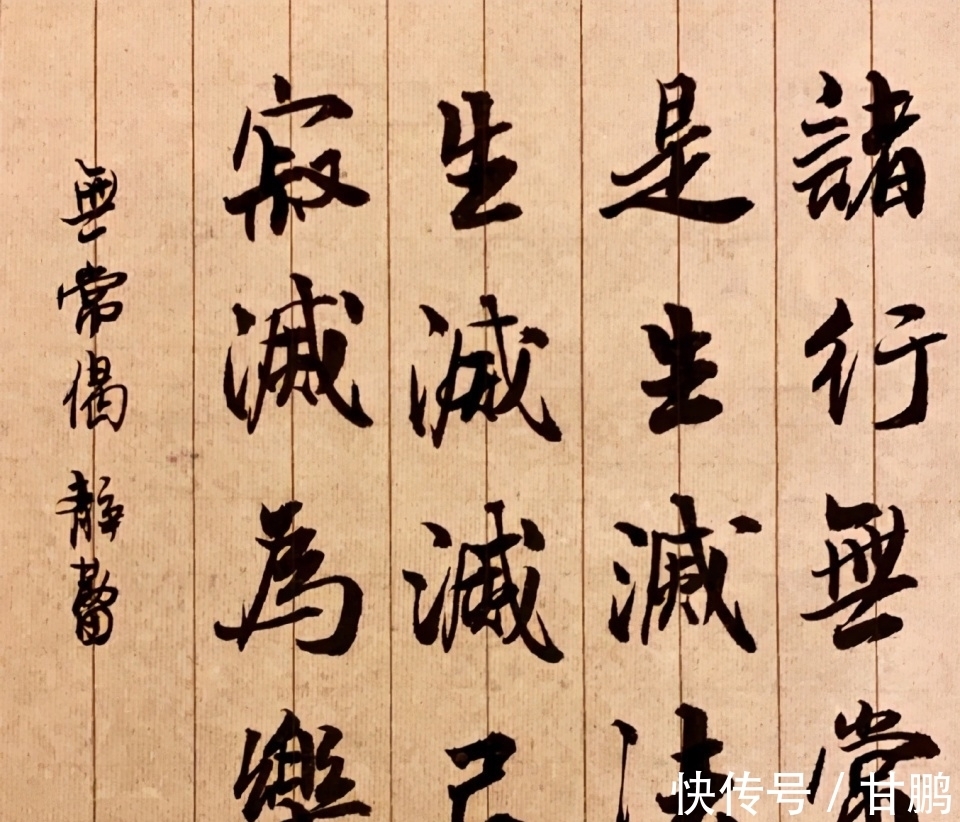 諸行無常
是生滅法
生滅滅已
寂滅為樂
無常偈 靜蕾
快传号 / 甘鹏